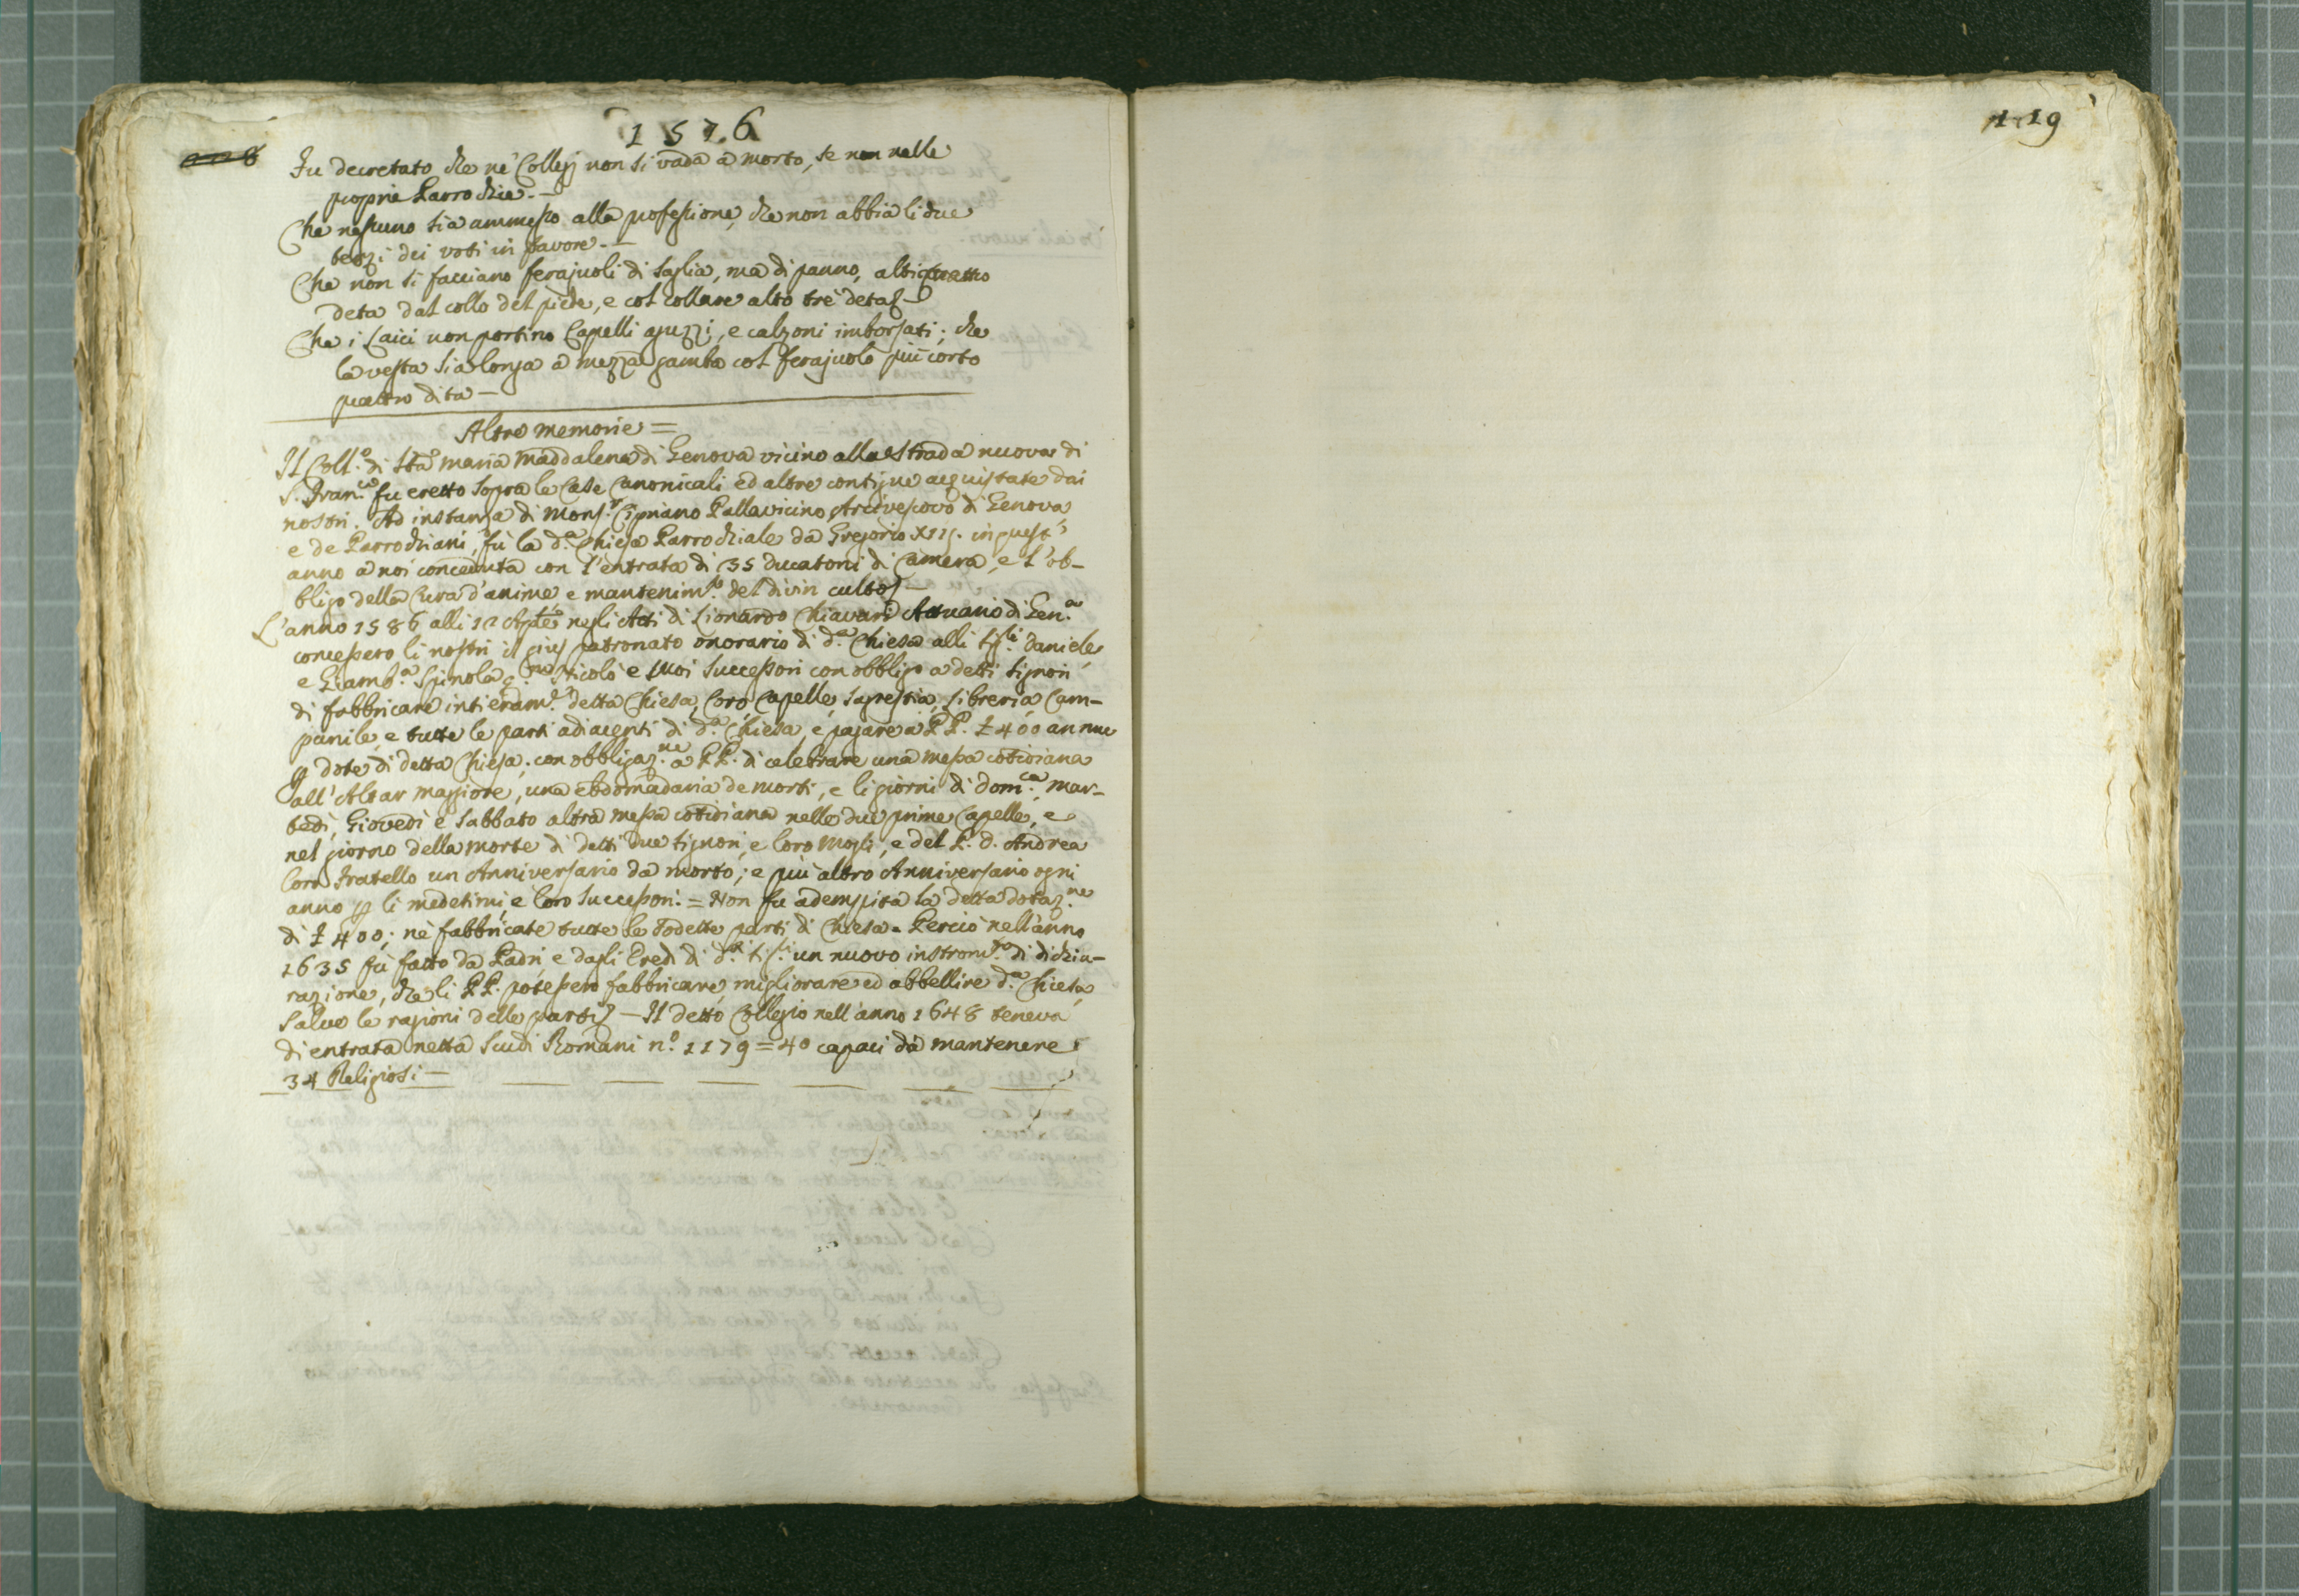 1576
Fu decretato che nè Collegj non si vada à morto, se non nelle
proprie Parrochie. —
Che nessuno sia ammesso alla professione, che non abbia li due
terzi dei voti in favore. —
Che non si facciano ferajuoli di saglia, ma di panno, alti quattro
deta dal collo del piede, e col collare alto trè deta —
Che i Laici non portino Capelli aguzzi, e calzoni imborsati; che
la vesta sia longa à mezza gamba col ferajuolo più corto
quattro dita —
Altre memorie =
Il Coll.º di Sta Maria Maddalena di Genova vicino alla Strada nuova di
S. Fran.co fu eretto sopra le Case Canonicali ed altre contigue acquistate dai
nostri. Ad instanza di Mons.r Cipriano Pallavicino Arcivescovo di Genova
e de Parrochiani, fù la d.a Chiesa Parrochiale da Gregorio XIII. in quest'
anno à noi conceduta con l'entrata di 35 ducatoni di Camera, e l'ob-
bligo della Cura d'anime e mantenim.to del divin culto —
L'anno 1586 alli 12 negli Atti di Lionardo Chiavari Attuario di Gen.a
concessero li nostri il jus patronato onorario di d.a Chiesa alli Sig.li Daniele
e Giamb.a Spinola q. Nicolò e suoi Successori con obbligo a detti Signori
di fabbricare intieram.te detta Chiesa, Coro Capelle, Sagrestia, Libreria Cam-
panile, e tutte le parti adiacenti di d.a Chiesa, e pagare a PP. £ 400 annue
p dote di detta Chiesa; con obbligaz.ne a PP. di celebrare una messa cotidiana
all'Altar maggiore, una ebdomadaria de morti, e li giorni di Dom.ca, Mar-
tedi, Giovedì e Sabbato altra messa cotidiana nelle due prime Capelle, e
nel giorno della morte di detti due Signori, e loro Mogli, e del P. D. Andrea
loro Fratello un Anniversario da morto; e più altro Anniversario ogni
anno p li medesimi, e loro Successori. = Non fu adempita la detta dotaz.ne
di £ 400; nè fabbricate tutte le sodette parti di Chiesa. Perciò nell'anno
1635 fù fatto da Padri e dagli Eredi di d.i Sig.i un nuovo instrom.to di dichia-
razione, che li PP. potessero fabbricare, migliorare ed abbellire d.a Chiesa
salve le ragioni delle parti — Il detto Collegio nell'anno 1648 teneva
di entrata netta Scudi Romani n.º 1179=40 capaci da mantenere
34 Religiosi —
119